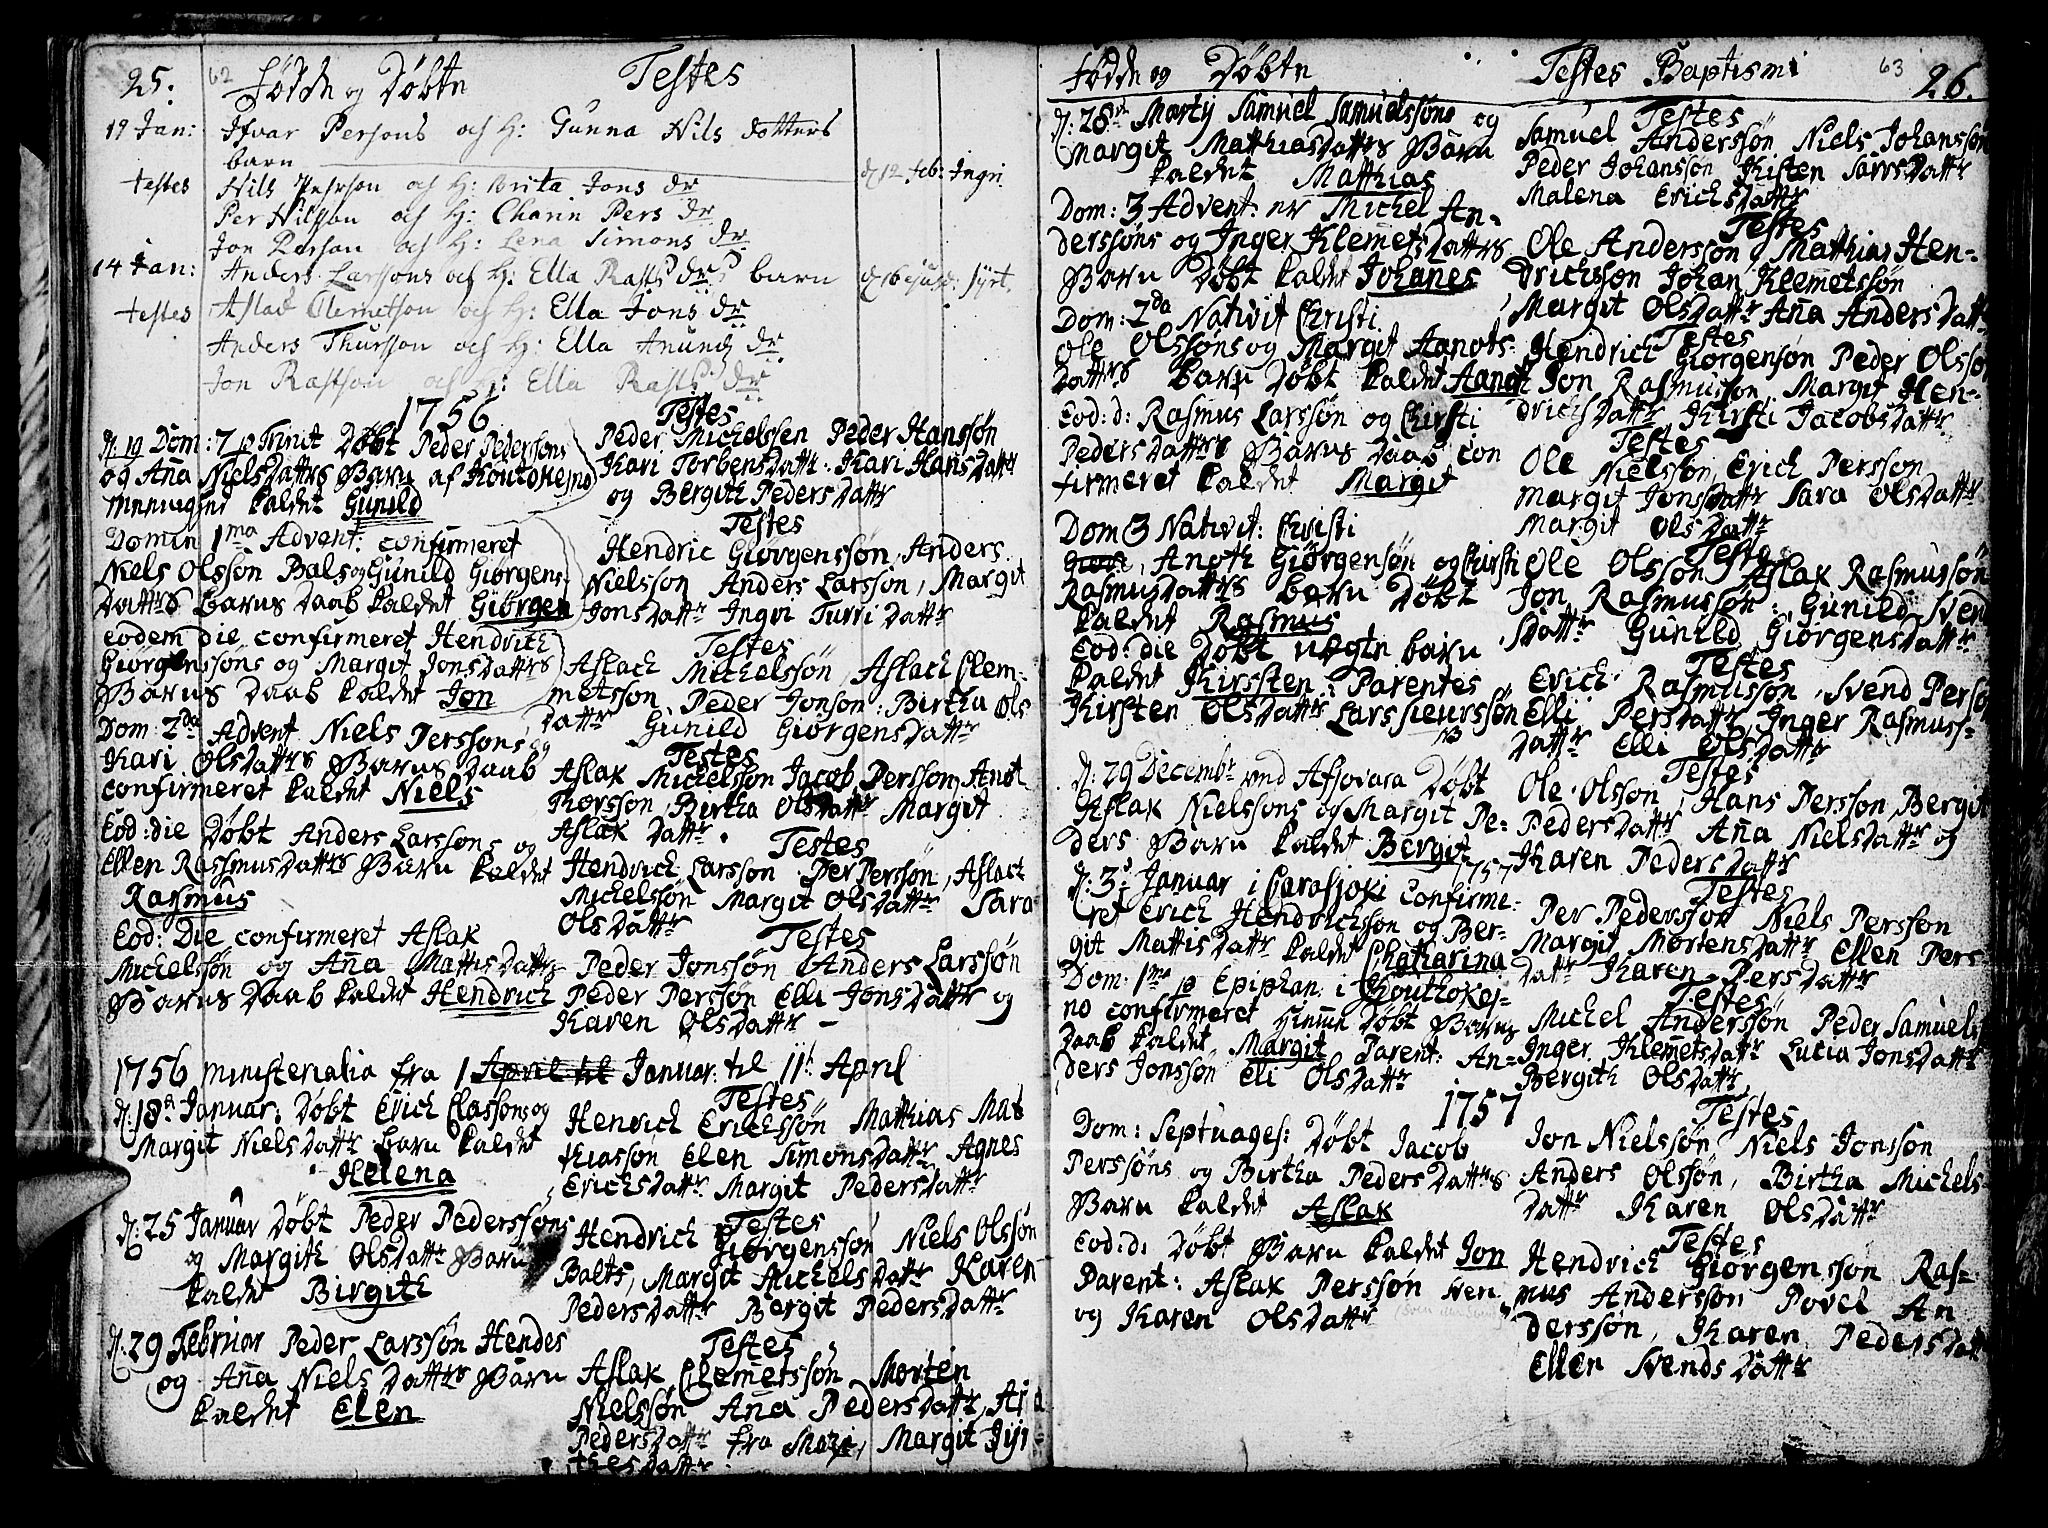 25. 62 Fødde og Døbte Testes
19 Jan: Ifvar Persons och H: Gunna Nils dotters
barn
testes Nils Pehrson och H: Brita Jons dr d 12 Feb: Ingri
Per Nilsson och H: Charin Pers dr
Jon Person och H: Lena Simons dr
14 Jan: Anders Larssons och H: Ella Rasts dr barn
testes Aslac Clemetson och H: Ella Jons dr
Anders Thursson och H: Ella Anunds dr
Jon Rastson och H: Ella Rasts dr
1756
d: 19 Dom: 7 p Trinit Døbt Peder Pedersøns
og Aña Nielsdatters Barn af Koutokejno
Menninger kaldet Gunild
Testes
Peder Michelssen Peder Hanssøn
Kari Torbensdattr: Kari Hansdattr
og Bergith Pedersdattr
Domin 1ma Advent: confirmeret
Niels Olssøn Bals og Gunild Giørgens-
datters Barns daab kaldet Giørgen
Testes
Hendric Giørgenssøn, Anders
Nielsson Anders Larssøn, Margit
Jonsdattr Ingri Turridattr
eodem die confirmeret Hendrich
Giørgenssøns og Margit Jonsdatters
Barns daab kaldet Jon
Testes
Aslach Michelssøn, Aslach Clem-
metsson, Peder Jonson: Birtha Ols
dattr Gunild Giørgensdattr
Dom: 2da Advent Niels Perssons og
Kari Olsdatters Barns daab
confirmeret kaldet Niels
Testes
Aslak Michelsson Jacob Persson, Anot
Thorsson, Birtha Olsdattr Margit
Aslak dattr
Eod: die Døbt Anders Larssons og
Ellen Rasmusdatters Barn kaldet
Rasmus
Testes
Hendrich Larsson Per Perssøn, Aslack
Michelssøn Margit Olsdattr Sara
Olsdattr
Eod: Die confirmeret Aslak
Michelssøn og Aña Mattisdatters
Barns daab kaldet Hendrich
Testes
Peder Jonssøn Anders Larssøn
Peder Perssøn Elli Jonsdattr og
Karen Olsdattr
1756 ministerialia fra 1 April til Januar: til 11te April
d: 18a Januar: Døbt Erich Classons og
Margit Nielsdattr barn kaldet
Helena
Testes
Henrich Erichssøn Matthias Mat
thiassøn Elen Simonsdattr, Agnes
Erichsdattr Margit Pedersdattr
d: 25 Januar Døbt Peder Pederssøns
og Margith Olsdattr Barn
kaldet Birgith
Testes
Hendrich Giørgenssøn Niels Olssøn
Balts, Margit Michelsdattr Karen
Pedersdattr Bergit Pedersdattr
d: 29 Februar Peder Larssøn Hendes
og Aña Nielsdatters Barn
kaldet Elen
Testes
Aslak Clemetssøn, Morten
Nielssøn Aña Pedersdattr,
Pedersdattr fra Maze, Margit
Fødde og Døbte Testes Baptismi 63 26.
d: 28de Marty Samuel Samuelssøns og
Margit Matthiasdatters Barn
kaldet Matthias
Testes
Samuel Anderssøn Niels Johanssøn
Peder Johanssøn Kisten Larsdattr
Malena Erichsdattr
Dom: 3 Advent: er Michel An-
derssøns og Inger Klemetsdatters
Barn Døbt kaldet Johanes
Testes
Ole Anderssøn, Mathias Hen-
drichssøn Johan Klemetssøn
Margit Olsdattr Aña Andersdattr
Dom: 2da Nativit Christi
Ole Olssøns og Margit Aanots-
datters barn Døbt kaldet Aanot
Testes
Hendrich Giørgensøn Peder Olsson
Jon Rasmusson, Margit Hen-
drichsdattr Kirsti Jacobsdattr
Eod: d: Rasmus Larssøn og Chirsti
Pedersdatters Barns daab con
firmeret kaldet Margit
Testes
Ole Nielsson, Erich Persson
Margit Jonsdattr Sara Olsdattr
Margit Olsdattr
Dom 3 Nativit: Christi
Anoth Giørgensøn og Chirsti
Rasmusdatters barn Døbt
kaldet Rasmus
Testes
Ole Olsson Aslak Rasmussøn
Jon Rasmussøn: Gunild Svend
sdattr Gunild Giørgensdattr
Eod: die Døbt uegte barn
kaldet Kirssten: Parentes
Kirsten Olsdattr Lars Sieurssøn
Testes
Erich Rasmusson, Svend Persson
Elli Persdattr Inger Rasmuss-
dattr Elli Olsdattr
d: 29 Decembr ved Afsovara Døbt
Aslak Nielssons og Margit Pe-
ders Barn kaldet Bergit
Testes
Ole Olsson, Hans Persson Bergit
Pedersdattr Aña Nielsdattr og
Karen Pedersdattr
1757
d: 3de Januar i Carasjoki confirme-
ret Erich Hendrichsson og Ber-
git Mattisdattr kaldet Chatharina
Testes
Per Pederssøn Niels Persson
Margit Mortensdattr Ellen Pers
dattr Karen Persdattr
Dom: 1ma p Epiphan: i Kouthokej-
no confirmeret hieme Døbt Barns
Daab kaldet Margit Parent: An-
ders Jonssøn Eli Olsdattr
Testes
Michel Anderssøn Peder Samuels
Inger Klemetsdattr Lucia Jonsdattr
Bergith Olsdattr
1757
Dom: Septuages: Døbt Jacob
Perssøns og Birtha Pedersdatters
Barn kaldet Aslak
Testes
Jon Nielssøn Niels Jonsson
Anders Olssøn, Birtha Michels-
dattr Karen Olsdattr
Eod: d: Døbt Barn kaldet Jon
Parent: Aslak Perssøn
og Karen Olsdattr
Testes
Hendrich Giørgenssøn Ras-
mus Anderssøn Povel An
derssøn, Karen Pedersdattr
Ellen Svendsdattr